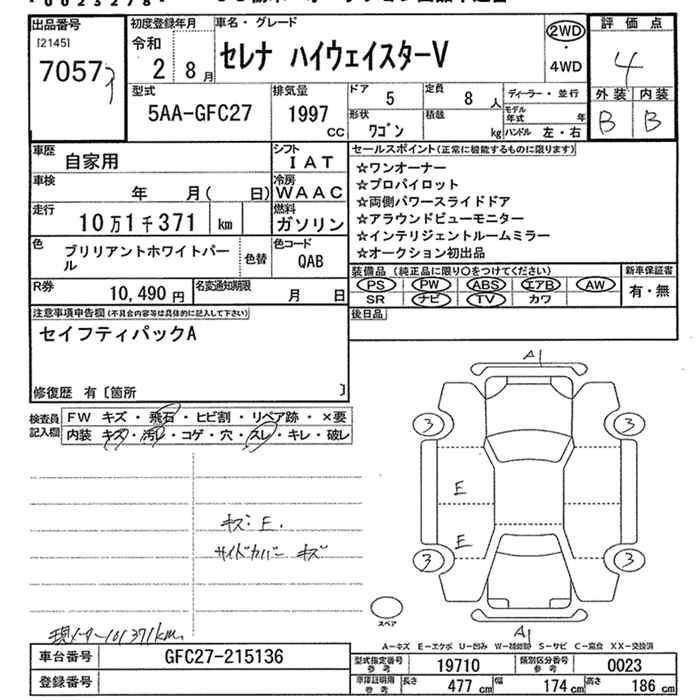 出品番号
[2145]
7057
初度登録年月
令和
2 8月
車名・グレード
セレナ ハイウェイスターV
2WD
・
4WD
評価点
4
外装 内装
B B
型式
5AA-GFC27
排気量
1997
CC
ドア
5
定員
8 人
形状
ワゴン
積載
kg
ディーラー・並行
モデル年式 年
ハンドル 左・右
車歴
自家用
シフト
IAT
車検
年 月( 日)
冷房
WAAC
走行
10万1千371 km
燃料
ガソリン
色
ブリリアントホワイトパール
色替
色コード
QAB
R券
10,490円
名変通知期限
月 日
セールスポイント(正常に機能するものに限ります)
☆ワンオーナー
☆プロパイロット
☆両側パワースライドドア
☆アラウンドビューモニター
☆インテリジェントルームミラー
☆オークション初出品
装備品(純正品に限り〇をつけてください)
PS PW ABS エアB AW
SR ナビ TV カワ
新車保証書
有・無
後日品
注意事項申告欄(不具合内容等は具体的に記入して下さい)
セイフティパックA
修復歴 有〔箇所 〕
検査員記入欄
FW キズ・飛石・ヒビ割・リペア跡・×要
内装 キズ・汚レ・コゲ・穴・スレ・キレ・破レ
キズ E.
サイドカバー キズ
現メーター101371km
A1
3 3
E
E
3 3
A1
スペア
A-キズ E-エクボ U-凹み W-補修跡 S-サビ C-腐食 XX-交換済
車台番号
GFC27-215136
登録番号
型式指定番号
参考
19710
類別区分番号
参考
0023
車庫証明用
参考
長さ
477 cm
幅
174 cm
高さ
186 cm